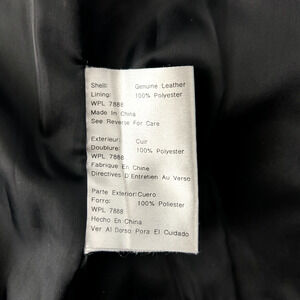 Shell: Genuine Leather
Lining: 100% Polyester
WPL 7888
Made In China
See Reverse For Care
Exterieur: Cuir
Doublure: 100% Polyester
WPL 7888
Fabrique En Chine
Directives D'Entretien Au Verso
Parte Exterior: Cuero
Forro: 100% Poliester
WPL 7888
Hecho En China
Ver Al Dorso Pora El Cuidado